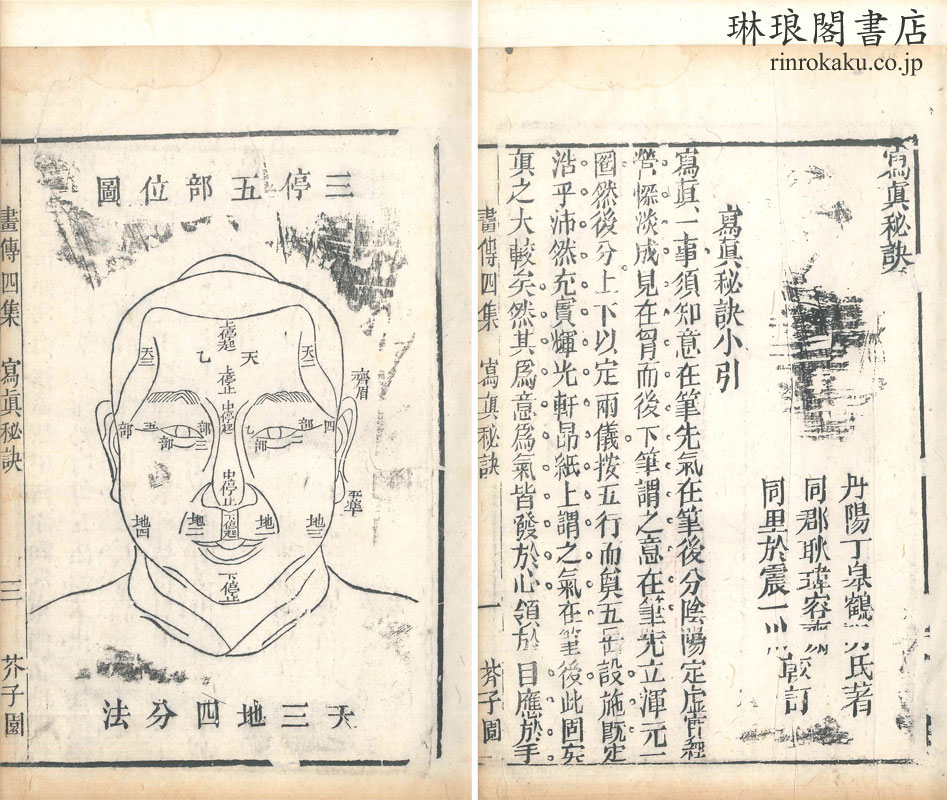 琳琅閣書店
rinrokaku.co.jp
寫眞秘訣
丹陽丁皋鶴氏著
同郡耿瑋容
同里於震一
較訂
寫眞秘訣小引
寫眞一事須知意在筆先氣在筆後分陰陽定虛實經
營慘淡成見在胷而後下筆謂之意在筆先立渾元一
圈然後分上下以定兩儀按五行而奠五岳設施既定
浩乎沛然充實輝光軒昂紙上謂之氣在筆後此固寫
眞之大較矣然其爲意爲氣皆發於心領於目應於手
畫傳四集 寫眞秘訣 一 芥子園
三停五部位圖
上停起
天三
天乙
天二
上停止
齊眉
中停起
四部
二部
乙部
三部
五部
中停止
平準
下停起
地三
地乙
地二
地四
下停止
天三地四分法
畫傳四集 寫眞秘訣 三 芥子園